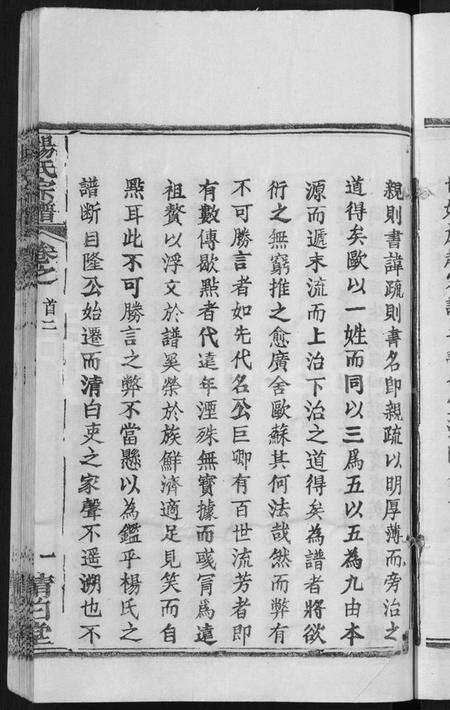 親則書諱疏則書名即親疏以明厚薄而旁治之
道得矣歐以一姓而同以三爲五以五為九由本
源而遞末流而上治下治之道得矣為譜者將欲
衍之無窮推之愈廣舍歐蘇其何法哉然而弊有
不可勝言者如先代名公巨卿有百世流芳者即
有數傳歇㸃者代遠年湮殊無實據而或冐爲遠
祖贅以浮文於譜奚榮於族鮮濟適足見笑而自
㸃耳此不可勝言之弊不當懸以為鑑乎楊氏之
譜断自隆公始遷而清白吏之家聲不遥溯也不
楊氏宗譜
卷之
首二
一
清白堂